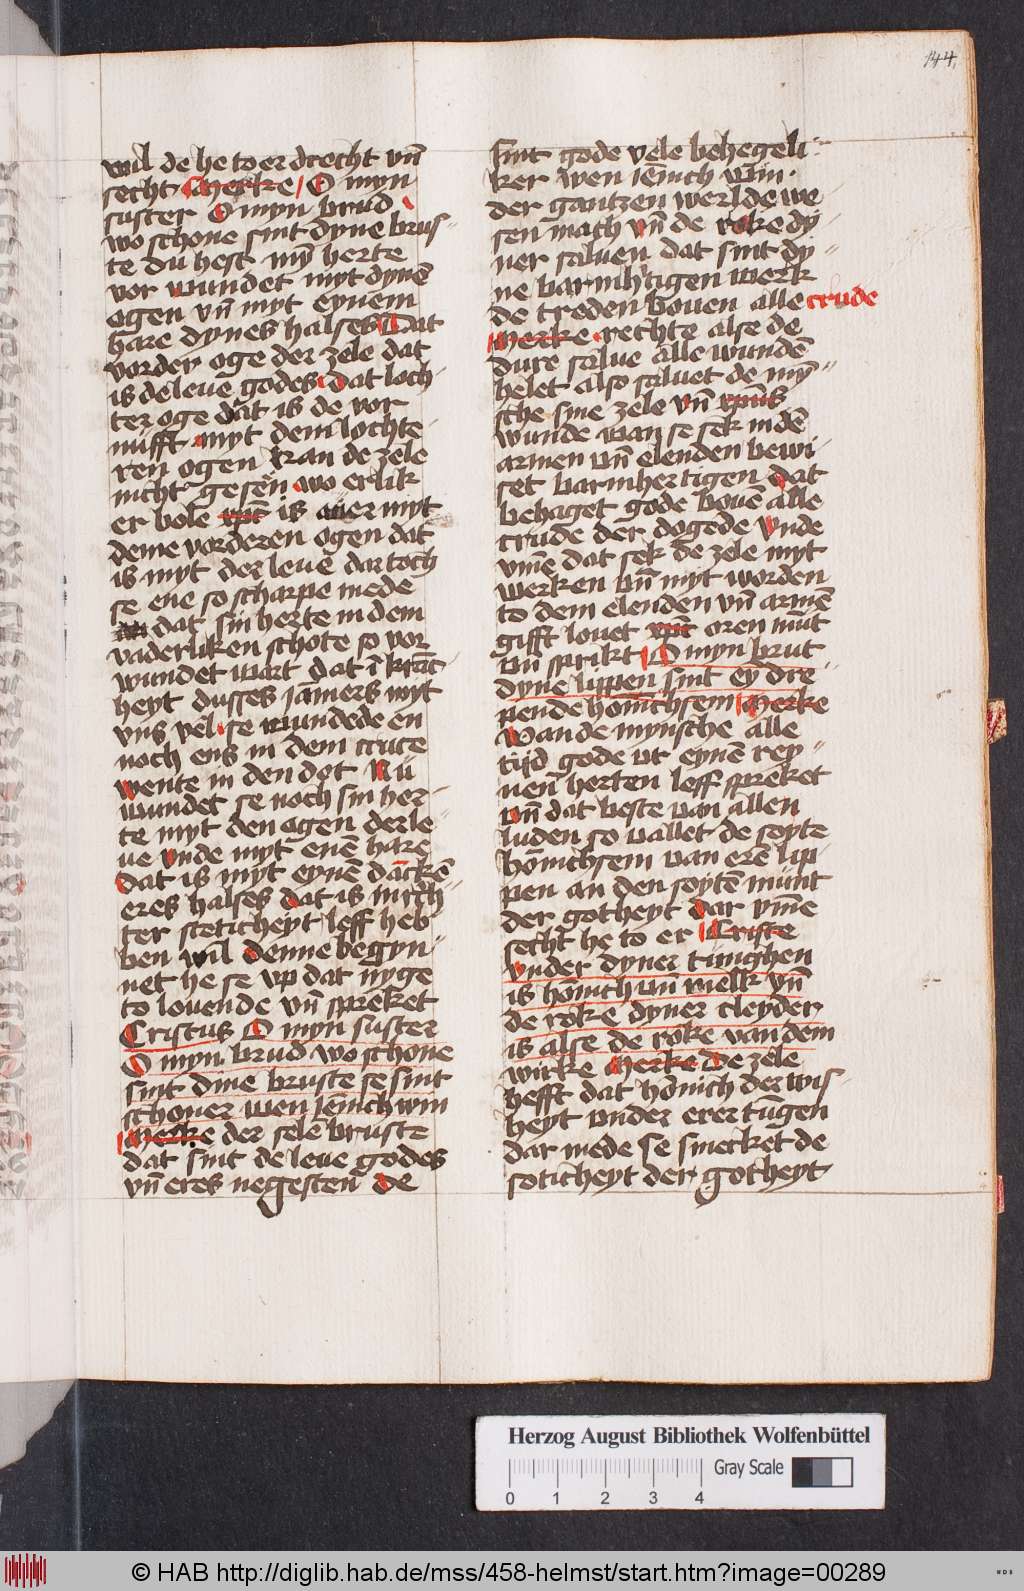 144
wil de he to er drecht vn̄
secht Merke O myn
suster O myn brud
wo schone sint dyne brus
te du hest mȳ herte
vor wundet myt dynē
ogen vn̄ myt eynem
hare dynes halses Dat
vorder oge der zele dat
is de leue godes dat loch
ter oge dat is de vor
nufft myt dem lochte
ren ogen kan de zele
nicht gesen wo erlik
er bole xp̄c is auer myt
deme vorderen ogen dat
is myt der leue dar toch
se ene so scharpe mede
dat sin herte in dem
vaderliken schote so vor
wundet wart dat ī krāc
heyt dusses jāmers myt
vns vel se wundede en
noch ens in dem cruce
wente in den dot Nū
wundet se noch sin her
te myt den ogen der le
ue vnde myt enē hare
dat is myt eynē dāckē
eres halses dat is mit ch
ter steticheyt leff heb
ben wil denne begyn
net he se vp dat nyge
to louende vn̄ spreket
Cristus O myn suster
O myn brud wo schone
sint dine bruste se sint
schoner wen jēnich win
Merke der sele bruste
dat sint de leue godes
vn̄ eres negesten de
sint gode vele behegeli
ker wen jēnich win
der gantzen werlde we
sen mach vn̄ de roke dy
ner saluen dat sint dy
ne barmh'tigen werk
de treden bouen alle crude
Merke rechte alse de
dure salue alle wundē
helet also saluet de mȳ
sche sine zele vn̄ xp̄us
wunde wan se sek in dē
armen vn̄ elenden bewi
set barmhertigen dat
behaget gode bouē alle
crude der dogede vnde
vm̄e dat sek de zele myt
werken vn̄ myt worden
to dem elenden vn̄ armē
gifft louet xp̄c oren mūt
vn̄ sprikt O myn brut
dyne lippen sint ey dre
pende hōnichsem Merke
Wan de mynsche alle
tijd gode vt eynē rey
nen herten leff spreket
vn̄ dat beste van allen
luden so vallet de soyte
hōnichsem van erē lip
pen an den soytē munt
der gotheyt dar vm̄e
secht he to er Criste
vnder dyner tunghen
is hōnich vn̄ mellk vn̄
de roke dyner cleyder
is alse de roke van dem
wirke Merke De zele
hefft dat hōnich der wis
heyt vnder erer tūgen
dar mede se smecket de
soticheyt der gotheyt
Herzog August Bibliothek Wolfenbüttel
Gray Scale
0 1 2 3 4
© HAB http://diglib.hab.de/mss/458-helmst/start.htm?image=00289